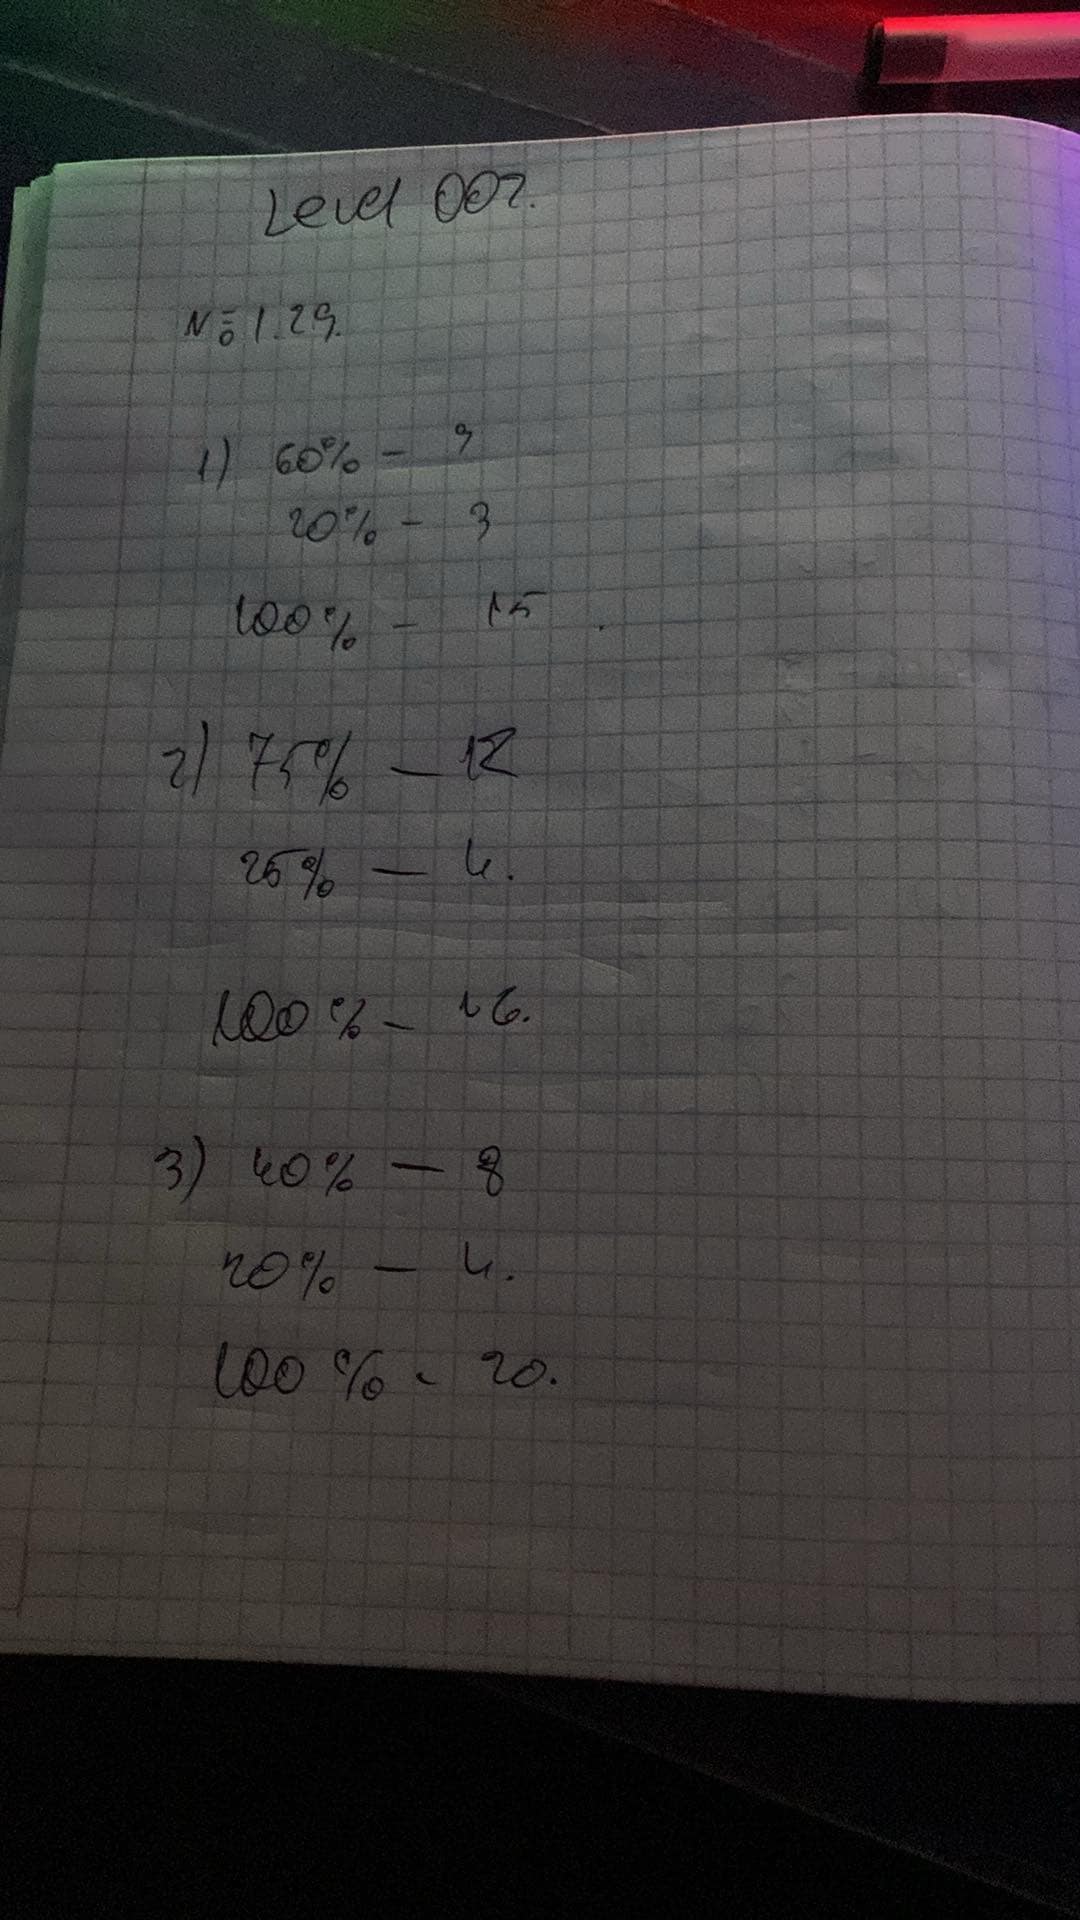 Level 007.
№ 1.29.
1) 60% - 9
20% - 3
100% - 15.
2) 75% - 12
25% - 4.
100% - 16.
3) 40% - 8
20% - 4.
100% - 20.